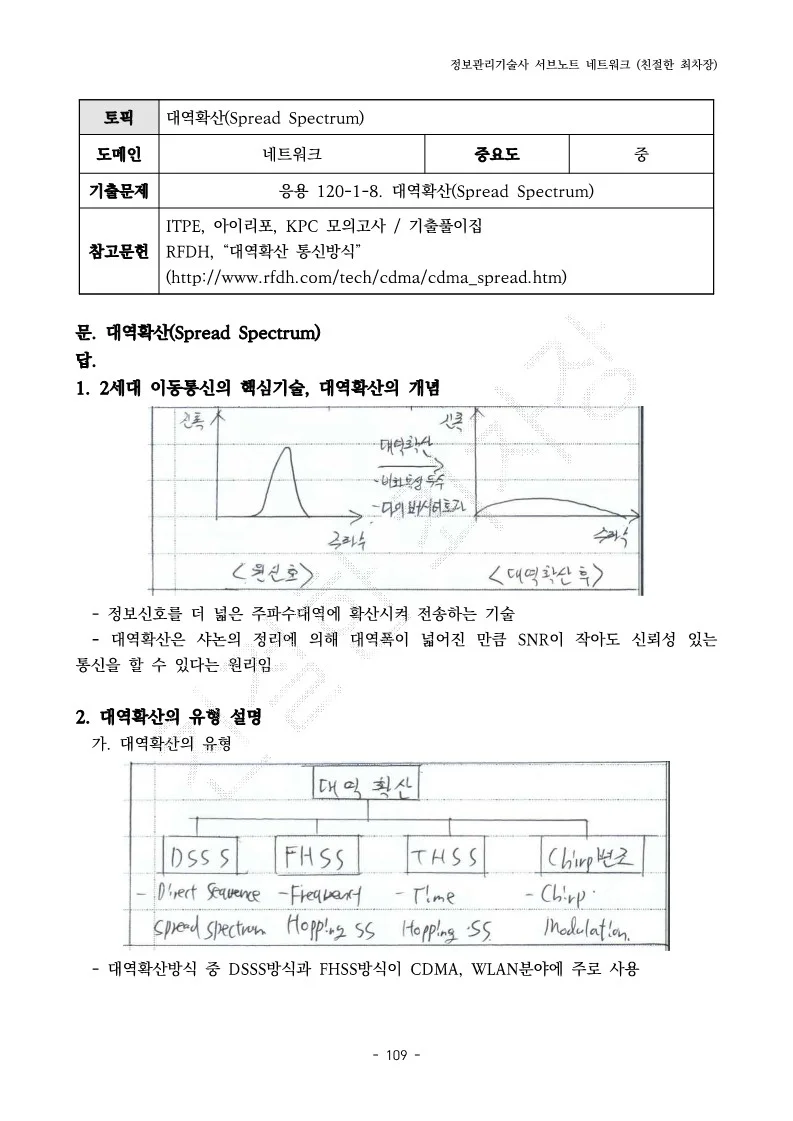 정보관리기술사 서브노트 네트워크 (친절한 최차장)
토픽 대역확산(Spread Spectrum)
도메인 네트워크 중요도 중
기출문제 응용 120-1-8. 대역확산(Spread Spectrum)
참고문헌 ITPE, 아이리포, KPC 모의고사 / 기출풀이집
RFDH, “대역확산 통신방식”
(http://www.rfdh.com/tech/cdma/cdma_spread.htm)
문. 대역확산(Spread Spectrum)
답.
1. 2세대 이동통신의 핵심기술, 대역확산의 개념
진폭 진폭
대역확산
주파수 주파수
<원신호> <대역확산 후>
- 정보신호를 더 넓은 주파수대역에 확산시켜 전송하는 기술
- 대역확산은 샤논의 정리에 의해 대역폭이 넓어진 만큼 SNR이 작아도 신뢰성 있는
통신을 할 수 있다는 원리임
2. 대역확산의 유형 설명
가. 대역확산의 유형
대역 확산
DSSS FHSS THSS Chirp변조
- Direct Sequence - Frequency - Time - Chirp
Spread Spectrum Hopping SS Hopping SS Modulation.
- 대역확산방식 중 DSSS방식과 FHSS방식이 CDMA, WLAN분야에 주로 사용
- 109 -
친절한 최차장